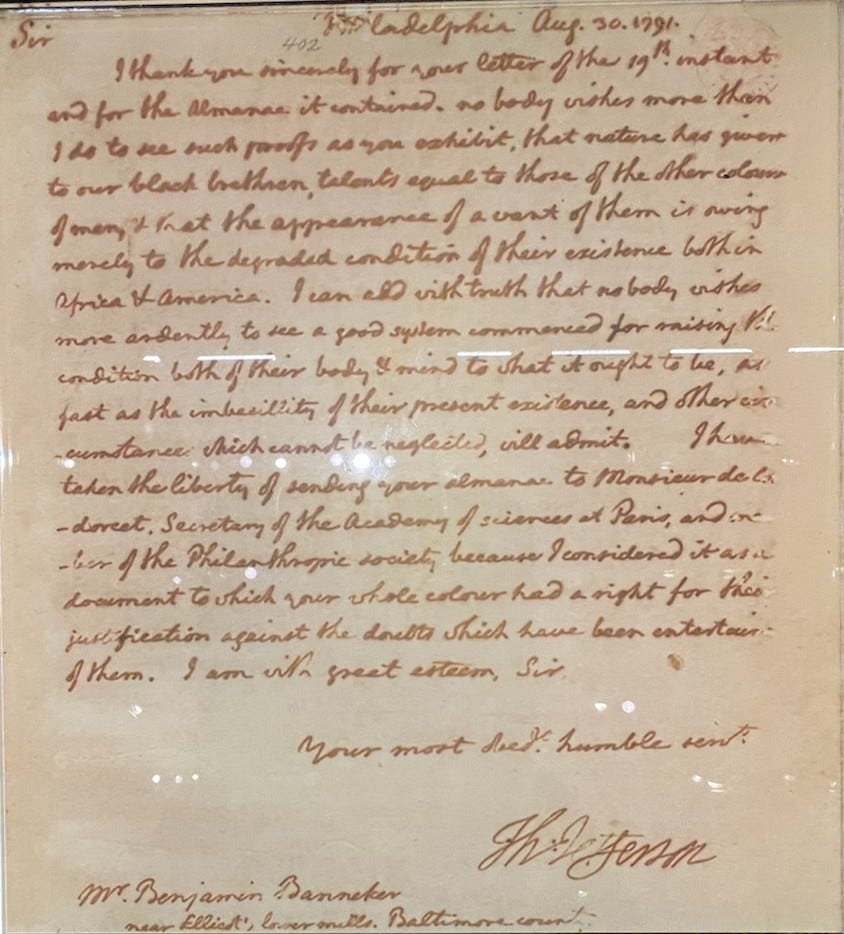 Sir Philadelphia Aug. 30. 1791.
402
I thank you sincerely for your letter of the 19th. instant
and for the Almanac it contained. no body wishes more than
I do to see such proofs as you exhibit, that nature has given
to our black brethren, talents equal to those of the other colours
of men, & that the appearance of a want of them is owing
merely to the degraded condition of their existence both in
Africa & America. I can add with truth that no body wishes
more ardently to see a good system commenced for raising the
condition both of their body & mind to what it ought to be, as
fast as the imbecillity of their present existence, and other cir
-cumstance which cannot be neglected, will admit. I have
taken the liberty of sending your almanac to Monsieur de Con
-dorcet, Secretary of the Academy of sciences at Paris, and mem
-ber of the Philanthropic society because I considered it as a
document to which your whole colour had a right for their
justification against the doubts which have been entertained
of them. I am with great esteem, Sir
Your most obedt. humble servt.
Th: Jefferson
Mr. Benjamin Banneker
near Ellicot's, lower mills. Baltimore county